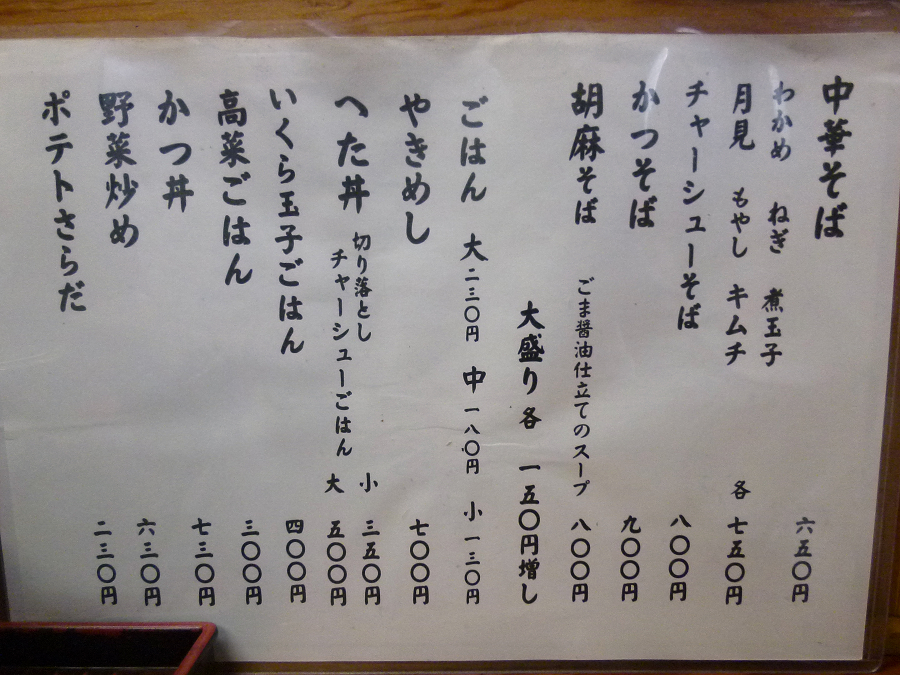 中華そば 六五〇円
わかめ ねぎ 煮玉子
月見 もやし キムチ 各 七五〇円
チャーシューそば 八〇〇円
かつそば 九〇〇円
胡麻そば ごま醤油仕立てのスープ 八〇〇円
大盛り 各 一五〇円増し
ごはん 大 二三〇円 中 一八〇円 小 一三〇円
やきめし 七〇〇円
へた丼 切り落とし 小 三五〇円
チャーシューごはん 大 五〇〇円
いくら玉子ごはん 四〇〇円
高菜ごはん 三〇〇円
かつ丼 七三〇円
野菜炒め 六三〇円
ポテトさらだ 二三〇円